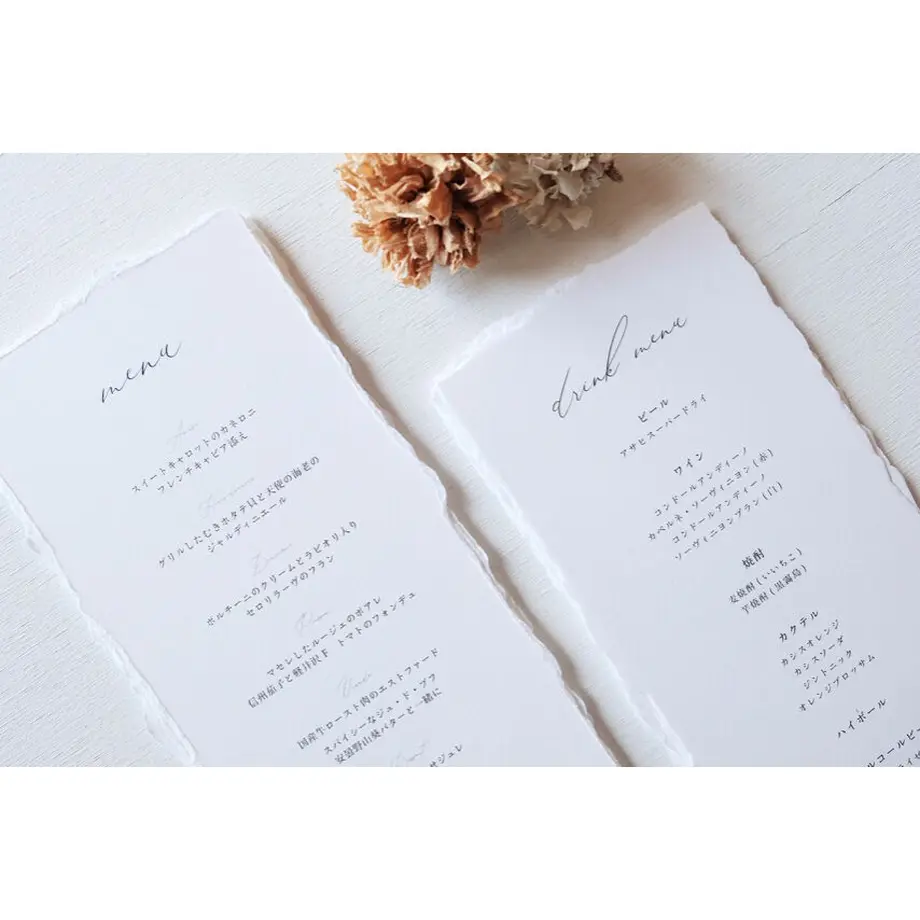 menu
スイートキャロットのカネロニ
フレンチキャビア添え
グリルしたむきホタテ貝と天使の海老の
ジャルディニエール
ポルチーニのクリームとラビオリ入り
セロリラーヴのフラン
マセレしたルージュのポアレ
信州茄子と軽井沢 F トマトのフォンデュ
国産牛ロースト肉のエストファード
スパイシーなジュ・ド・ブフ
安曇野山葵バターと一緒に
drink menu
ビール
アサヒスーパードライ
ワイン
コンドールアンディーノ
カベルネ・ソーヴィニヨン(赤)
コンドールアンディーノ
ソーヴィニヨンブラン(白)
焼酎
麦焼酎(いいちこ)
芋焼酎(黒霧島)
カクテル
カシスオレンジ
カシスソーダ
ジントニック
オレンジブロッサム
ハイボール